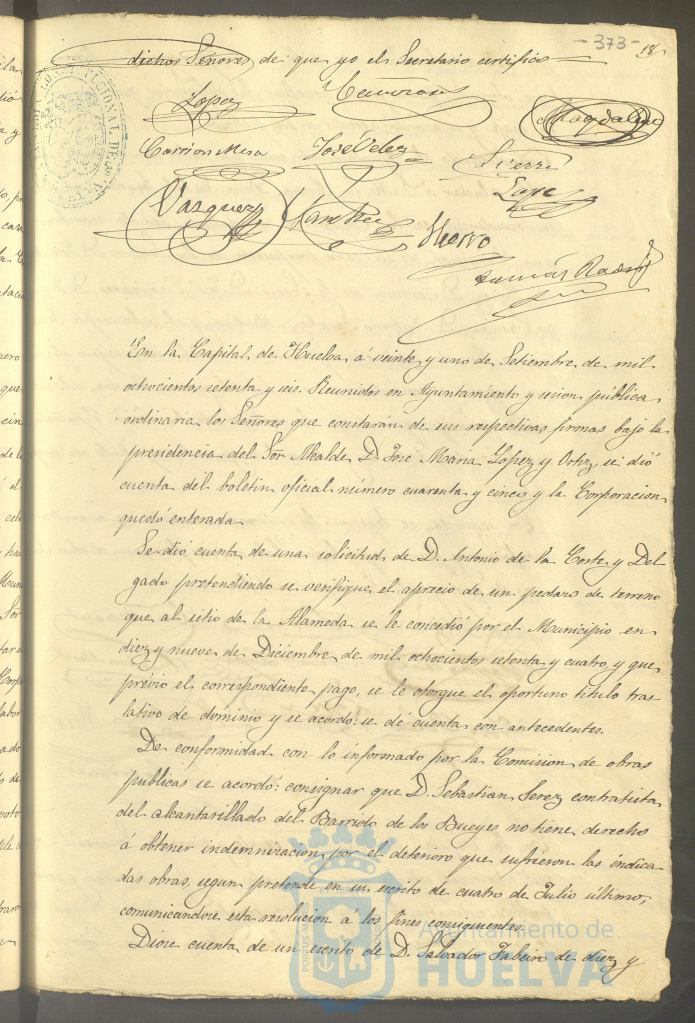 -373- 18
dichos Señores de que yo el Secretario certifico
Lopez
Magdalena
Carrion Mesa José Velez
Vazquez Sanchez Hierro
En la Capital de Huelva á veinte y uno de Setiembre de mil
ochocientos setenta y seis. Reunidos en Ayuntamiento y sesion pública
ordinaria los Señores que constarán de sus respectivas firmas bajo la
presidencia del Sor Alcalde D. José Maria Lopez y Ortiz, se dió
cuenta del boletin oficial número cuarenta y cinco y la Corporacion
quedó enterada.
Se dió cuenta de una solicitud de D. Antonio de la Corte y Del
gado pretendiendo se verifique el aprecio de un pedazo de terreno
que al sitio de la Alameda se le concedió por el Municipio en
diez y nueve de Diciembre de mil ochocientos setenta y cuatro, y que
prévio el correspondiente pago, se le otorgue el oportuno titulo tras
lativo de dominio y se acordó: se dé cuenta con antecedentes.
De conformidad con lo informado por la Comision de obras
publicas se acordó: consignar que D. Sebastian Perez contratista
del alcantarillado del Barrido de los Bueyes no tiene derecho
á obtener indemnizacion por el deterioro que sufrieron las indica
das obras, segun pretende en su escrito de cuatro de Julio último,
comunicandose esta resolucion á los fines consiguientes.
Diose cuenta de un escrito de D. Salvador Fabeiro de diez y
Ayuntamiento de
HUELVA